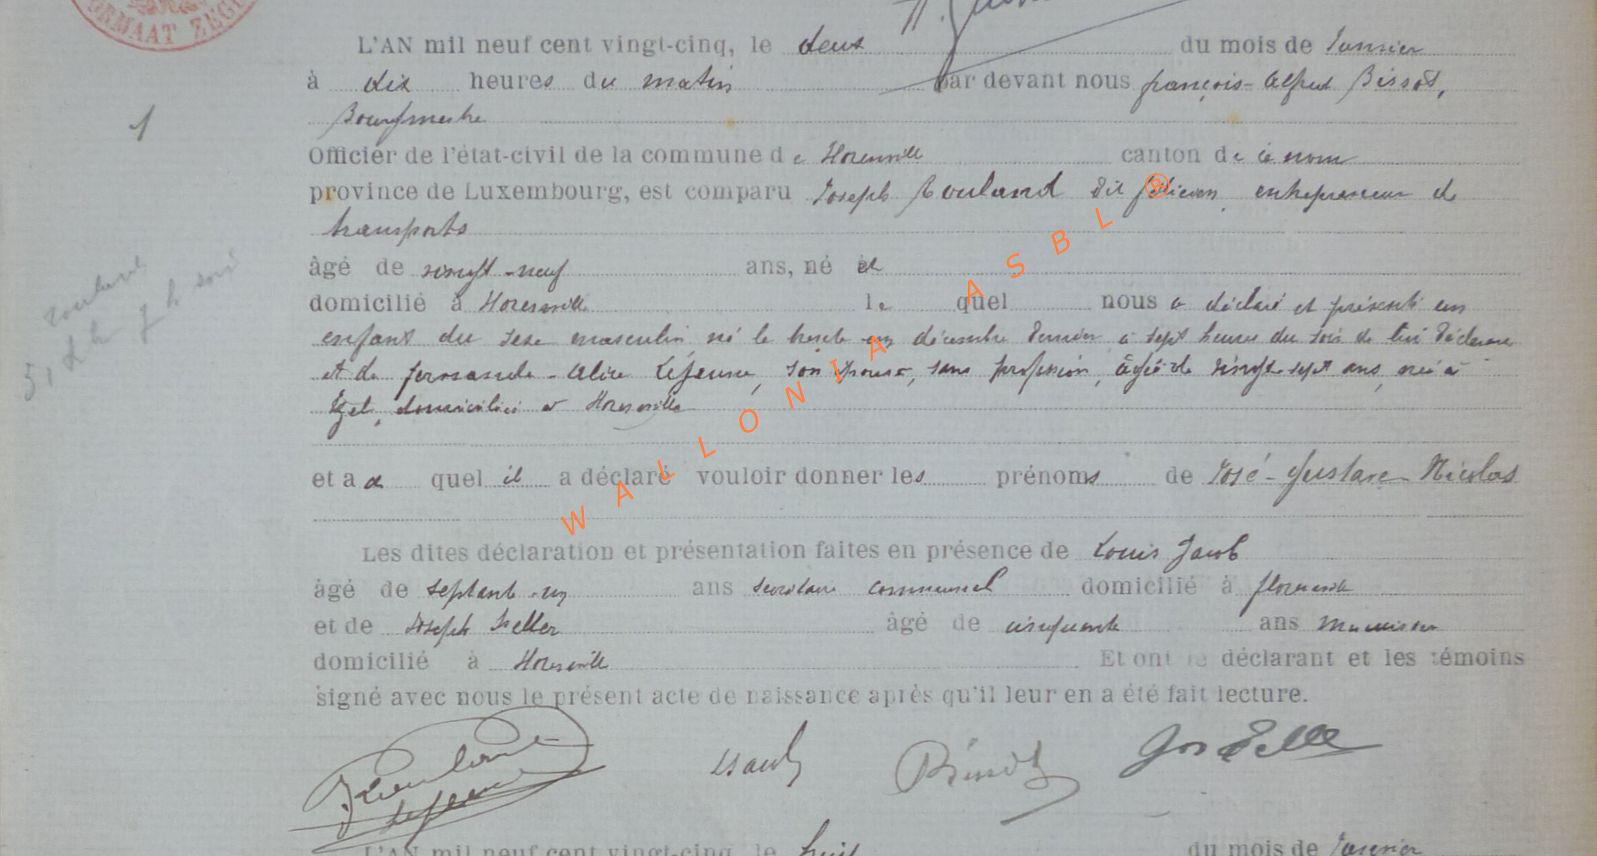 ORMAAT ZEGEL
L'AN mil neuf cent vingt-cinq, le deux du mois de Janvier
à dix heures du matin par devant nous françois-Alfred Bissot,
Bourgmestre
Officier de l'état-civil de la commune de Florenville canton de ce nom
province de Luxembourg, est comparu Joseph Rouland dit entrepreneur de
transports
âgé de vingt-neuf ans, né et
domicilié à Florenville le quel nous a déclaré et présenté un
enfant du sexe masculin, né le trente un décembre dernier à sept heures du soir de lui déclarant
et de fernande-Alice Lejeune, son épouse, sans profession, âgée de vingt-sept ans, née à
domiciliée à Florenville
et au quel il a déclaré vouloir donner les prénoms de José-Gustave-Nicolas
Les dites déclaration et présentation faites en présence de Louis Jacob
âgé de septante-un ans secrétaire communal domicilié à florenville
et de Joseph âgé de cinquante ans menuisier
domicilié à Florenville Et ont le déclarant et les témoins
signé avec nous le présent acte de naissance après qu'il leur en a été fait lecture.
L'AN mil neuf cent vingt-cinq, le huit du mois de Janvier
1
WALLONIA ASBL ®